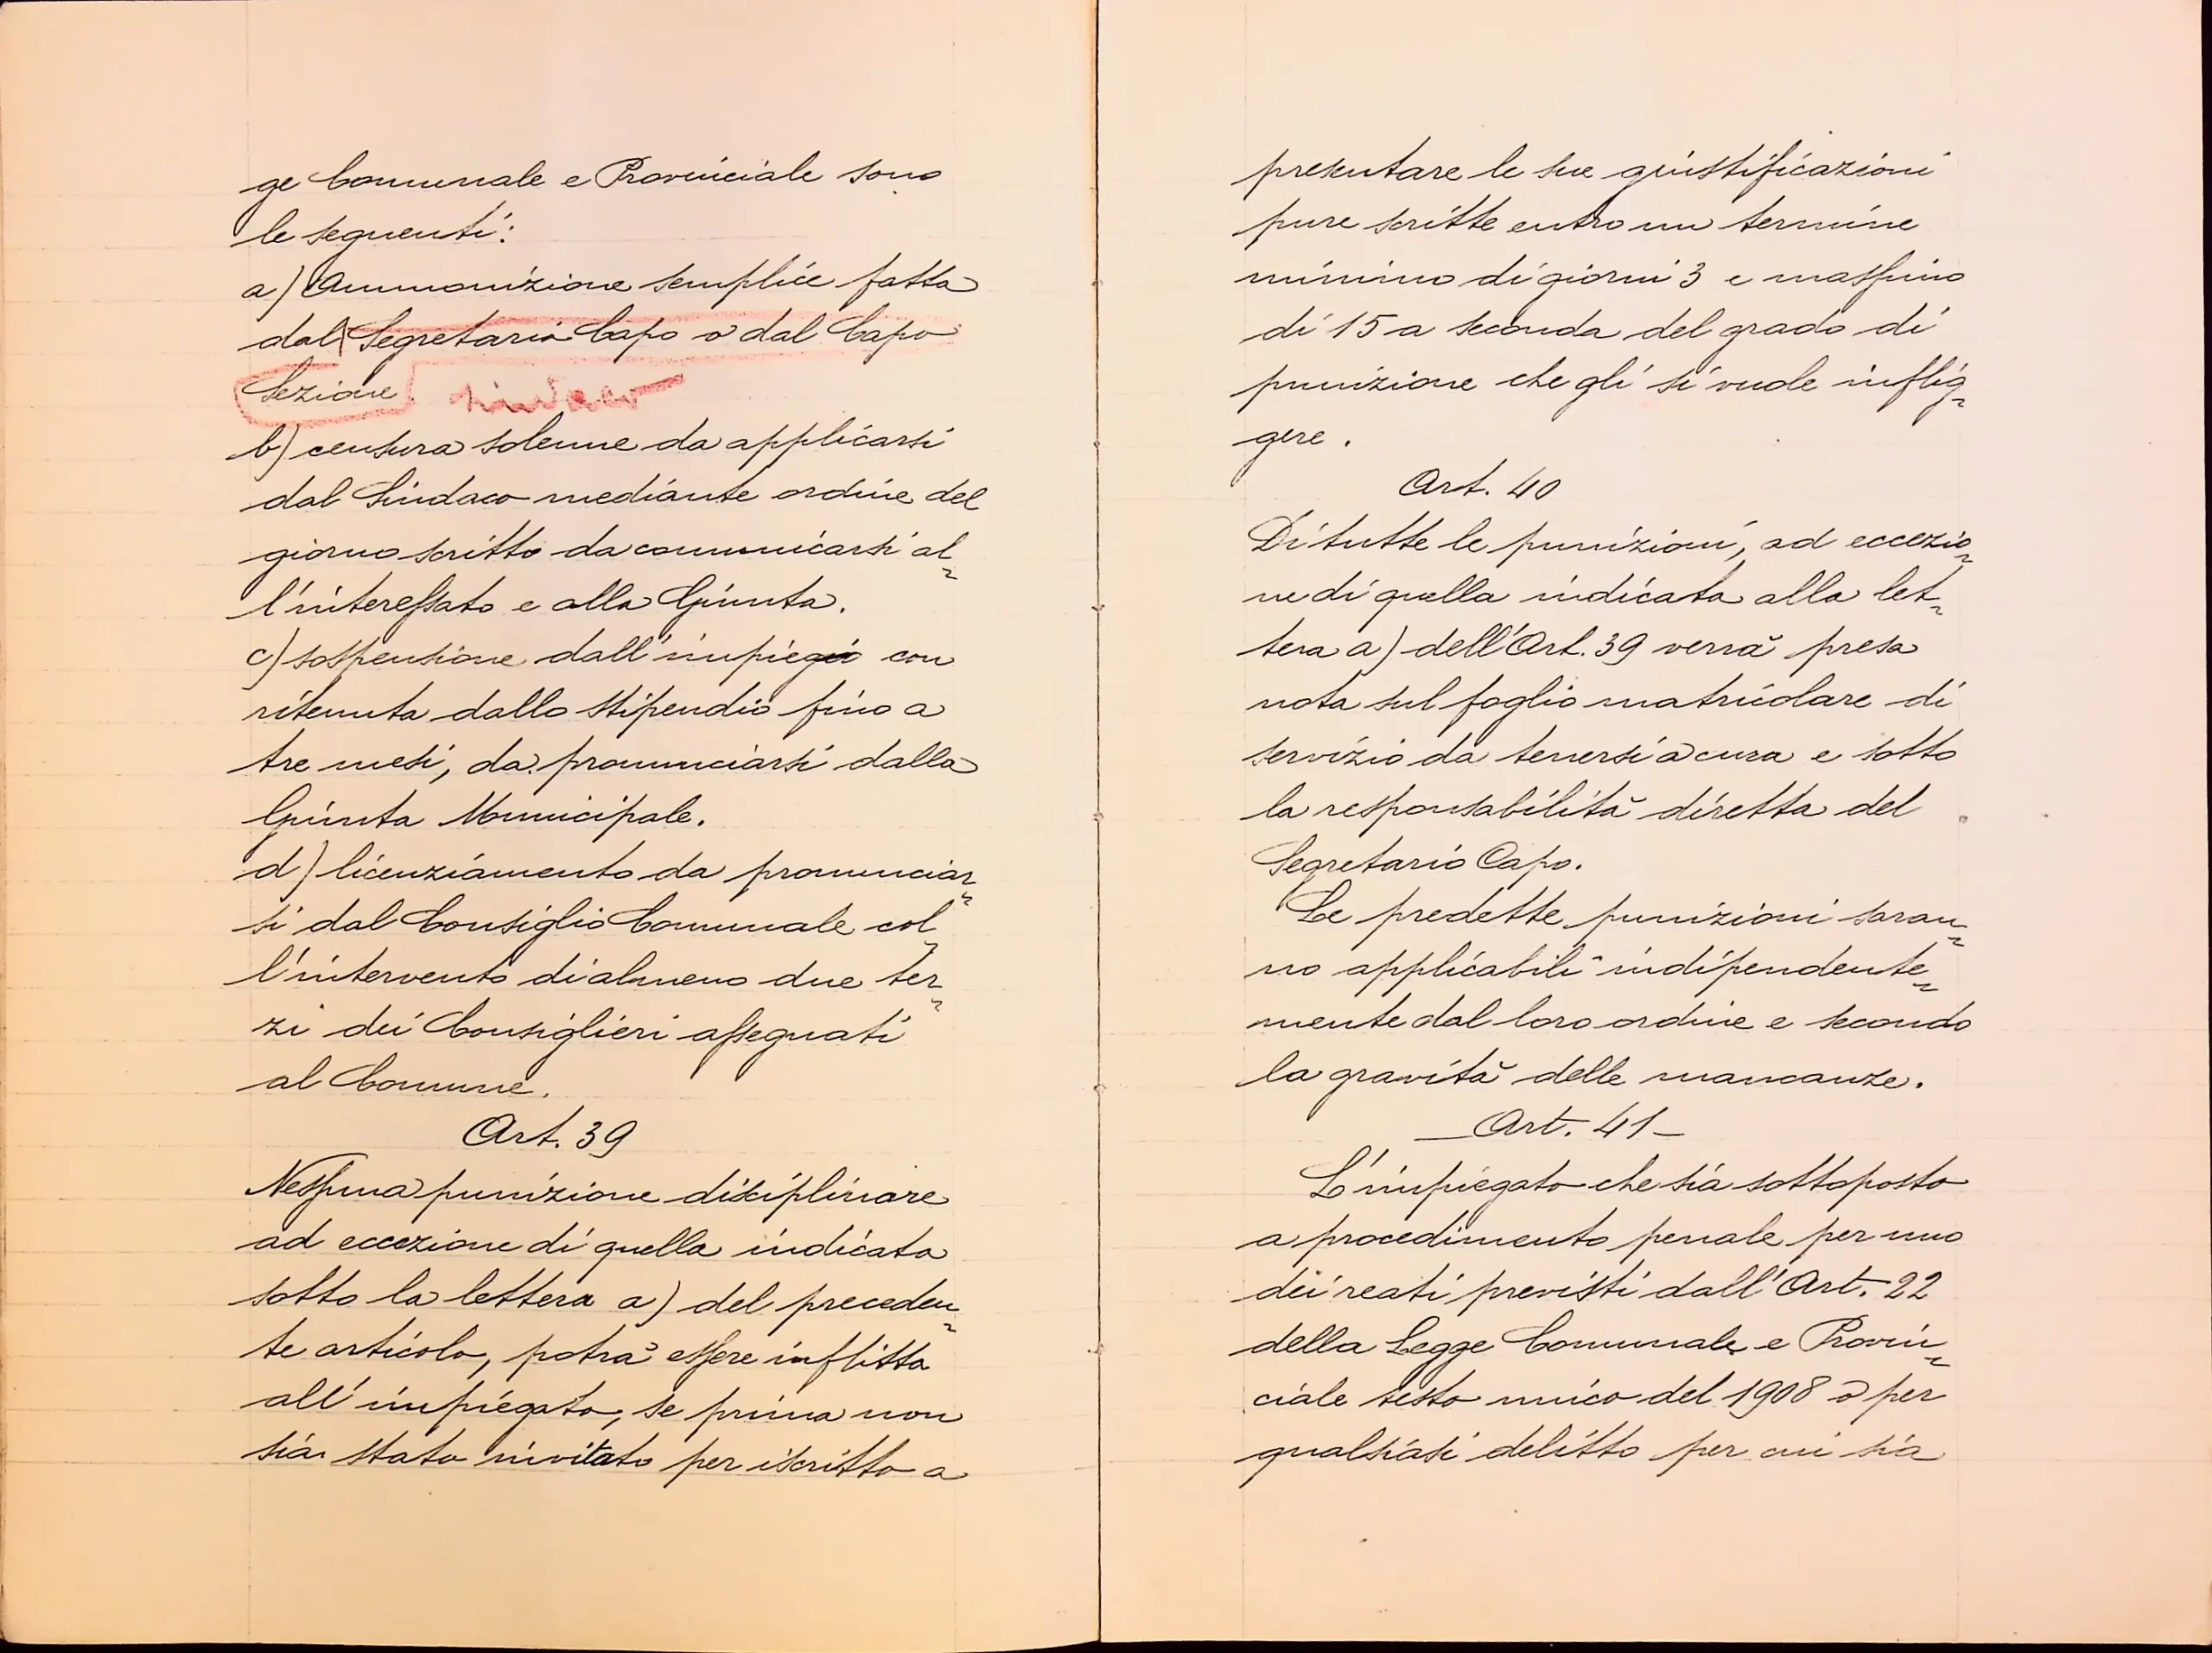 ge Comunale e Provinciale sono
le seguenti:
a) Ammonizione semplice fatta
dal Segretario Capo o dal Capo
Sezione. sindaco
b) censura solenne da applicarsi
dal Sindaco mediante ordine del
giorno scritto da comunicarsi al-
l'interessato e alla Giunta.
c) sospensione dall'impiego con
ritenuta dallo stipendio fino a
tre mesi, da pronunciarsi dalla
Giunta Municipale.
d) licenziamento da pronunciar-
si dal Consiglio Comunale col-
l'intervento di almeno due ter-
zi dei Consiglieri assegnati
al Comune.
Art. 39
Nessuna punizione disciplinare
ad eccezione di quella indicata
sotto la lettera a) del preceden-
te articolo, potrà essere inflitta
all'impiegato, se prima non
sia stato invitato per iscritto a
presentare le sue giustificazioni
pure scritte entro un termine
minimo di giorni 3 e massimo
di 15 a seconda del grado di
punizione che gli si vuole inflig-
gere.
Art. 40
Di tutte le punizioni, ad eccezio-
ne di quella indicata alla let-
tera a) dell'Art. 39 verrà presa
nota sul foglio matricolare di
servizio da tenersi a cura e sotto
la responsabilità diretta del
Segretario Capo.
Le predette punizioni saran-
no applicabili indipendente-
mente dal loro ordine e secondo
la gravità delle mancanze.
Art. 41
L'impiegato che sia sottoposto
a procedimento penale per uno
dei reati previsti dall'Art. 22
della Legge Comunale e Provin-
ciale testo unico del 1908 o per
qualsiasi delitto per cui sia